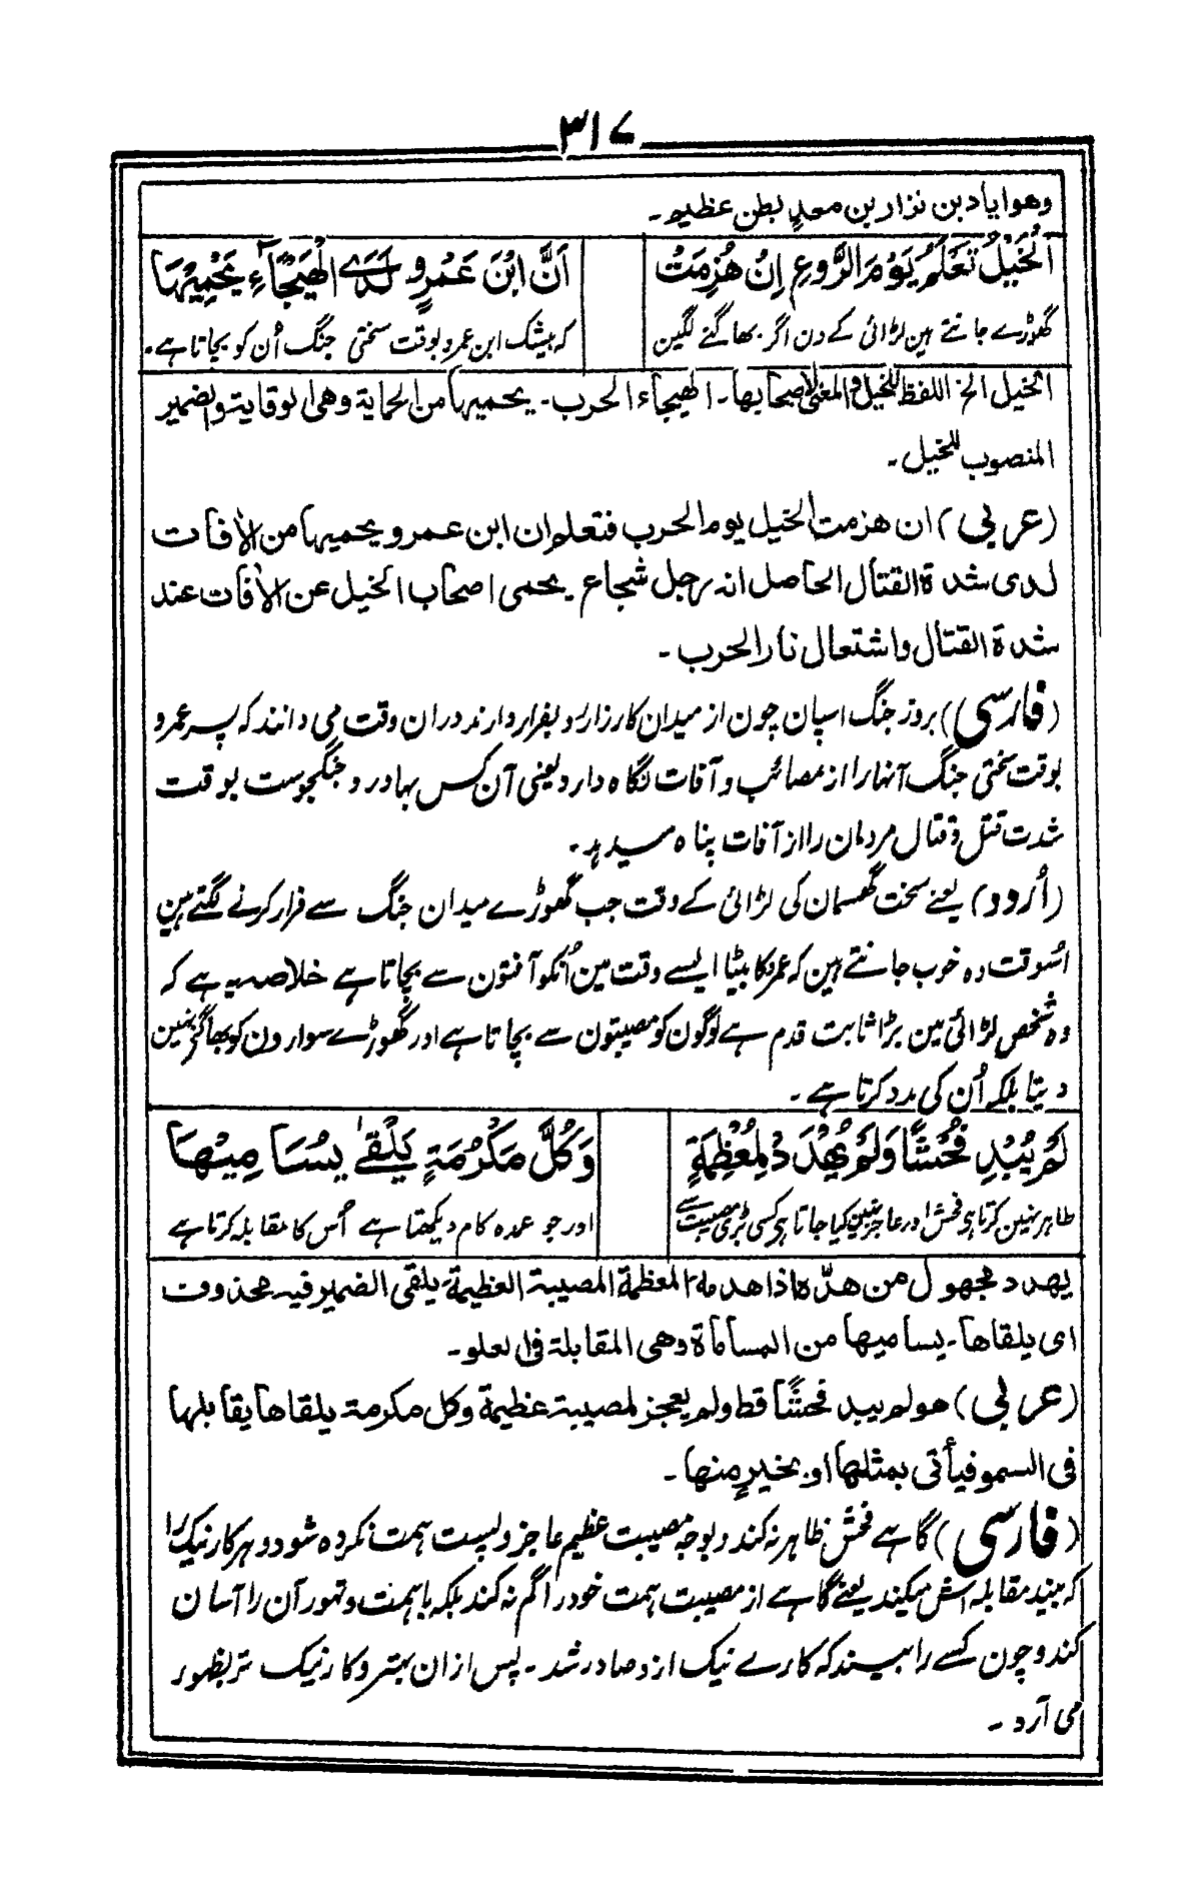 ۳۱۷
وهوایاد بن نزار بن معدٍ بطن عظیم۔
اَلْخَیْلُ تَعْلَمُ یَوْمَ الرَّوْعِ اِنْ هُزِمَتْ اَنَّ ابْنَ عَمْرٍو لَدَے الْهَیْجَآءِ یَحْمِیْهَا
گھوڑے جانتے ہین لڑائی کے دن اگر بھاگنے لگین کہ بیشک ابن عمرو بوقت سختی جنگ اُن کو بچاتا ہے۔
الخیل الخ اللفظ للخیل والمعنی لاصحابها۔ الهیجاء الحرب۔ یحمیها من الحمایة وهی الوقایة والضمیر
المنصوب للخیل۔
(عربی) ان هزمت الخیل یوم الحرب فتعلم ان ابن عمرو یحمیها من الاٰفات
لدی شدة القتال الحاصل انه رجل شجاع یحمی اصحاب الخیل عن الاٰفات عند
شدة القتال واشتعال نار الحرب۔
(فارسی) بروز جنگ اسپان چون از میدان کارزار رو بفرار دارند دران وقت می دانند کہ پسر عمرو
بوقت سختی جنگ آنها را از مصائب و آفات نگاه دارد یعنی آن کس بهادر و جنگجوست بوقت
شدت قتل و قتال مردمان را از آفات پناه میدہد۔
(اُردو) یعنے سخت گھمسان کی لڑائی کے وقت جب گھوڑے میدان جنگ سے فرار کرنے لگتے ہین
اُسوقت وہ خوب جانتے ہین کہ عمرو کا بیٹا ایسے وقت مین اُنکو آفتون سے بچاتا ہے خلاصہ یہ ہے کہ
وہ شخص لڑائی مین بڑا ثابت قدم ہے لوگون کو مصیبتون سے بچاتا ہے اور گھوڑے سوارون کو بھاگنے نہین
دیتا بلکہ اُن کی مدد کرتا ہے۔
لَمْ یُبْدِ فُحْشًا وَلَمْ یُهْدَدْ لِمُعْظِمَةٍ وَکُلُّ مَکْرُمَةٍ یَلْقٰے یُسَامِیْهَا
ظاہر نہین کرتا ہی فحش اور عاجز نہین کیا جاتا ہی کسی بڑی مصیبت سے اور جو عمدہ کام دیکھتا ہے اُس کا مقابلہ کرتا ہے
یهدد مجهول من هدّه اذا هدمه المعظمة المصیبة العظیمة۔ یلقی الضمیر فیه محذوف
ای یلقاها۔ یسامیها من المساماة وهی المقابلة فی العلو۔
(عربی) هو لم یبد فحشًا قط ولم یعجز لمصیبة عظیمة وکل مکرمة یلقاها یقابلها
فی السمو فیأتی بمثلها او بخیرٍ منها۔
(فارسی) گاہے فحش ظاہر نہ کند و بوجہ مصیبت عظیم عاجز و پست ہمت نکردہ شود و ہر کار نیک را
کہ بیند مقابلہ اش میکند یعنے گاہے از مصیبت ہمت خود را گم نہ کند بلکہ باہمت و تہور آن را آسان
کند و چون کسے را بیند کہ کارے نیک ازو صادر شد۔ پس ازان بہتر و کار نیک تر بظہور
می آرد۔